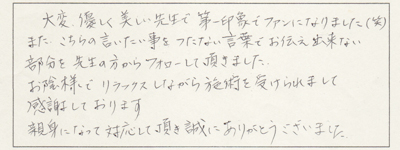 大変、優しく美しい先生で第一印象でファンになりました(笑)
また、こちらの言いたい事をつたない言葉でお伝え出来ない
部分を先生の方からフォローして頂きました。
お陰様でリラックスしながら施術を受けられまして
感謝しております
親身になって対応して頂き誠にありがとうございました。